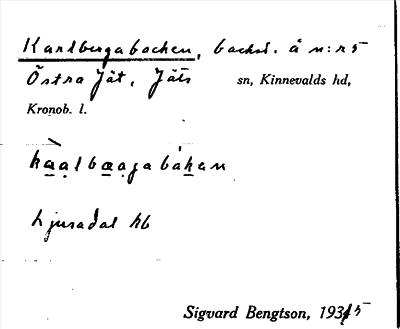 Karlbergabacken, backst. å n:r 5
Östra Jät, Jäts sn, Kinnevalds hd,
Kronob. l.
Ljusadal hb
Sigvard Bengtson, 1935